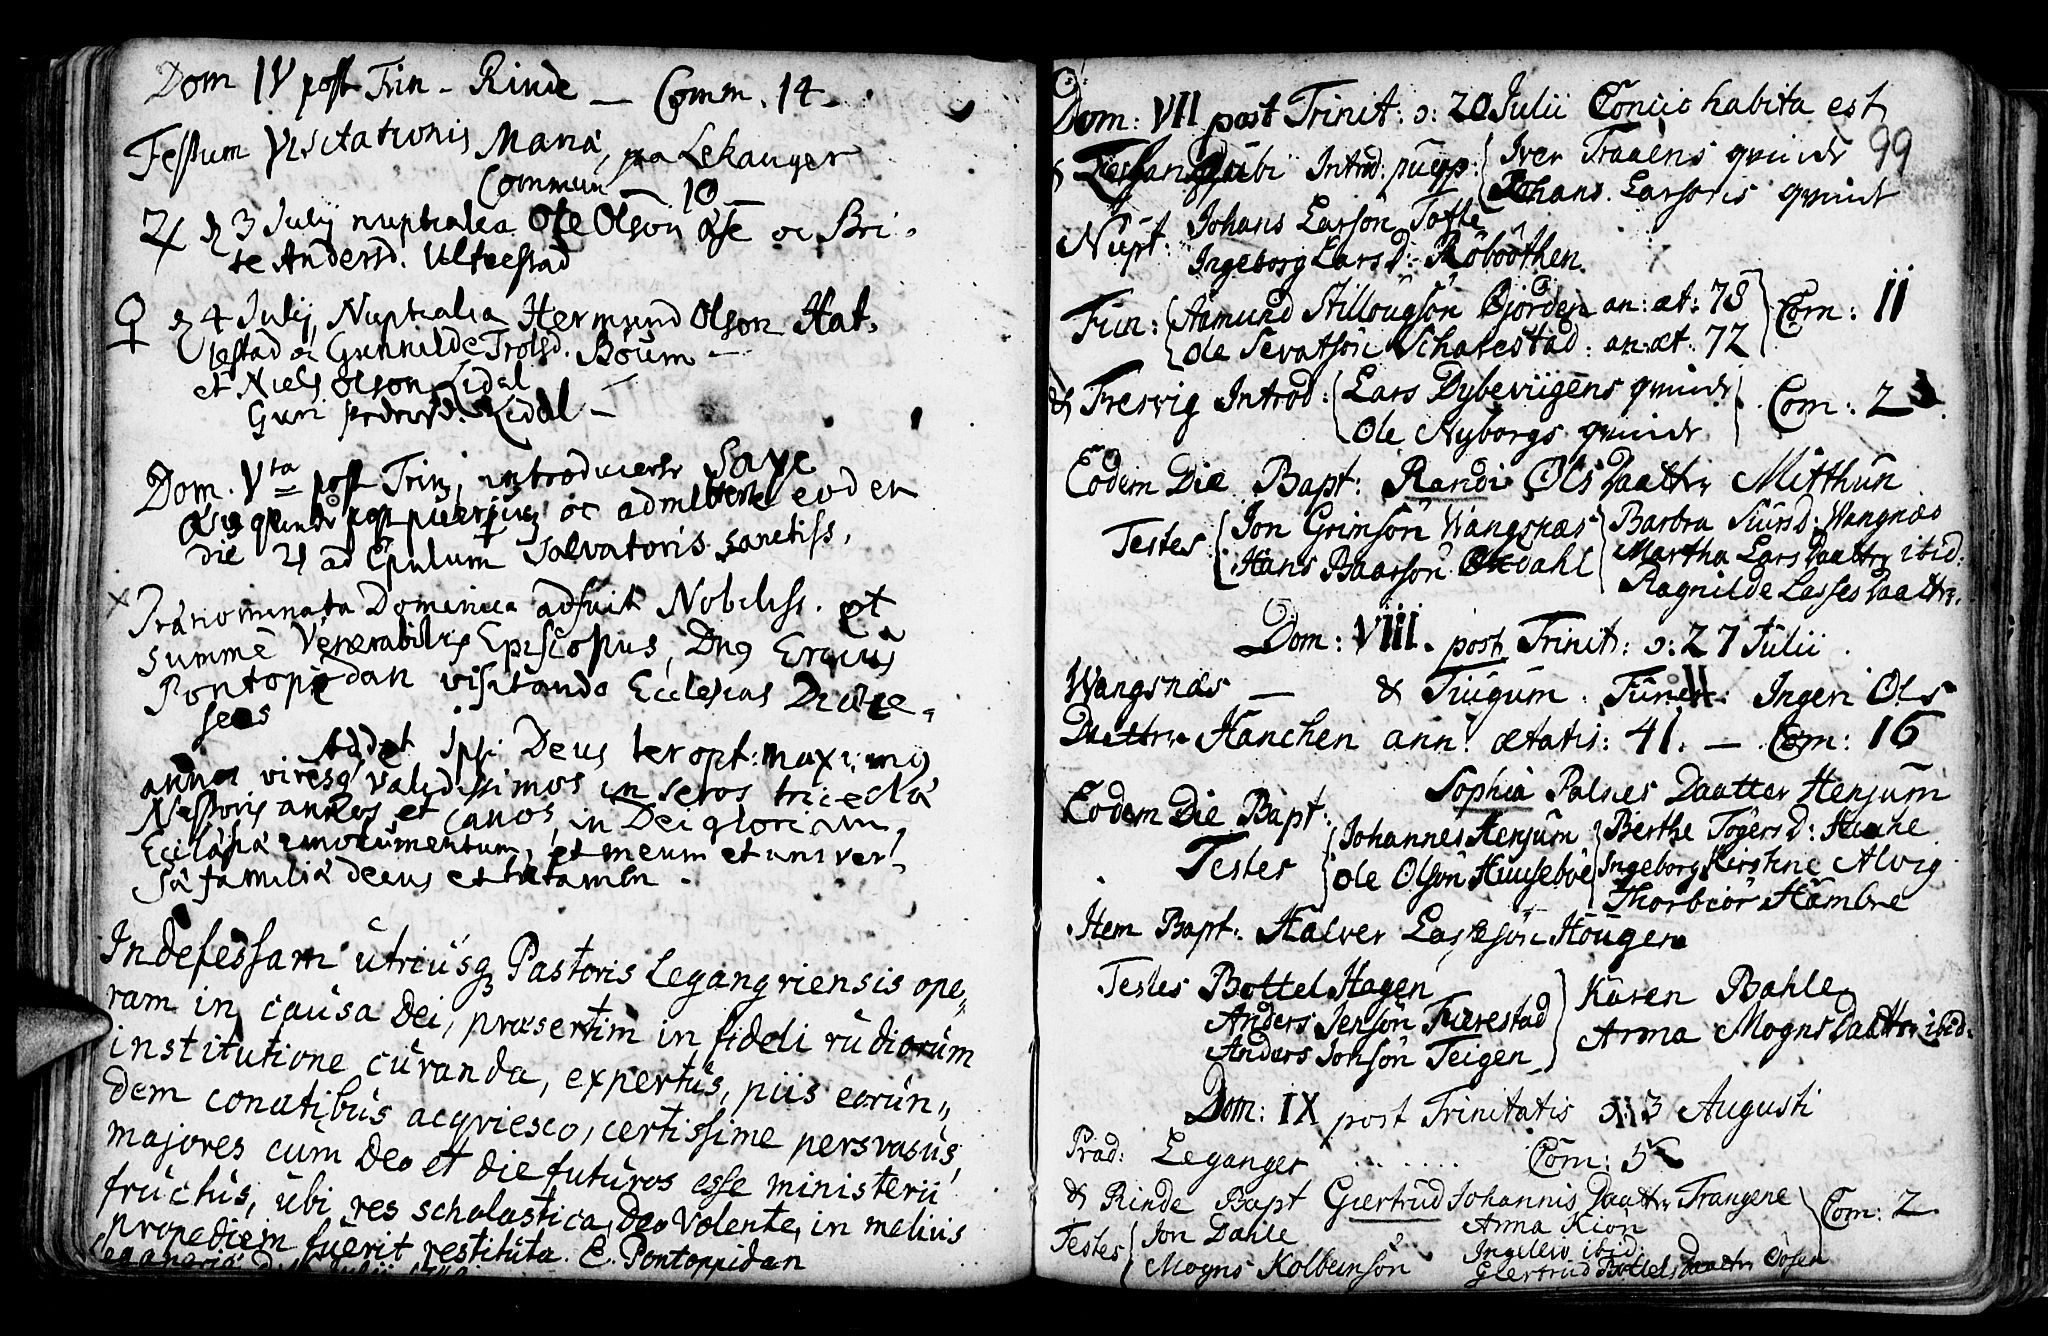 Dom IV post Trin - Rinde — Comm. 14 -
Festum Visitationis Mariä, paa Lekanger
Commun — 10 —
♃ d 3 Julij nuptialia Ole Olson Øse oc Bri-
te Andersd. Ulteestad
♀ d 4 Julij, Nuptialia Hermund Olson Hat-
lestad oc Gunnilde Trolsd. Böum —
et Niels Olson Lidal
Guri Lidal —
Dom. Vta post Trin, introducerer Saxe
qvinde post puerp oc eod en
die 4 ad Epulum Salvatoris sanctiss,
× Prænominata Dominica adfuit Nobiliss. et
summe Venerabilis Episcopus, Dn9 Ericus
Pontoppidan visitando Ecclesias Dioece-
seos
Addet ipsi Deus ter opt: maxim9
annos viresq validissimos in seros tricecla
Nestoris annos et canos, in Dei gloriam,
Ecclesiä emolumentum, et meum et univer-
sä familiä decus et tutamen.
Indefessam utriusq Pastoris Legangriensis ope,,
ram in causa Dei, præsertim in fideli rudiorum
institutione curanda, expertus, piis eorun,,
dem conatibus acqviesco, certissime persvasus,
majores cum Deo et die futuros esse ministerii
fructus, ubi res scholastica, Deo volente, in melius
propediem fuerit restituta. E. Pontoppidan
99
Dom: VII post Trinit: ɔ: 20 Julii Concio habita est
ubi Introd: puerp: Iver Traaens qvinde
Johans Larsons qvinde
Nupt: Johans Larson Tofte
Ingeborg Lars D: Röbööthen.
Fun: Aamund Stillougson Gjörden an: æt: 78
Ole Sevatson Schatestad: an: æt: 72 Com: 11
& Tresvig Introd: Lars Dybeviigens qvinde
Ole Nyborgs qvinde Com: 2
Eodem Die Bapt: Randi Ols Daatter Mitthun
Testes Jon Grimson Wangsnæs Barbra Siurd: Wangnæs
Hans Baarson Martha Lars Daatter ibid:
Ragnilde Lasses Daatter,
Dom: VIII. post Trinit: ɔ: 27 Julii.
Wangsnæs — & Tiugum. Funer: Ingeri Ols
Daatter Hanchen ann: ætatis: 41. — Com: 16
Eodem Die Bapt: Sophia Palnes Daatter Henjum
Testes Johannes Henjum Berthe Togers D: Hanhe
Ole Olson Huuseboe Ingeborg Kirstine Alvig
Thorbiör Hambre
Item Bapt: Halver Lasseson Hougen
Testes Bottel Hagen Karen Bahle
Anders Jenson Furestad Anna Mogns Daatter ibid.
Anders Jonson Teigen
Dom: IX post Trinitatis ɔ: 3 Augusti
Præd: Leganger . . . . . . . Com: 5
& Rinde Bapt Giertrud Johannis Daatter Trangene Com: 2.
Testes Jon Dahle Anna Kion
Ingelev ibid
Mogns Kolbeinson Giertrud Bottels Daatter Cosen